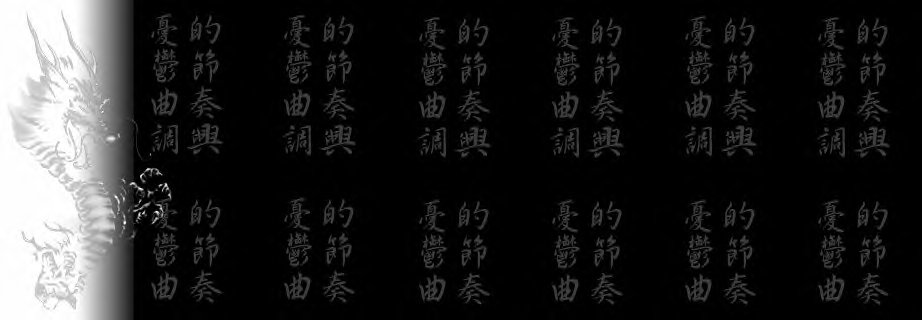 的節奏興
憂鬱曲調
的節奏興
憂鬱曲調
的節奏興
憂鬱曲調
的節奏興
憂鬱曲調
的節奏興
憂鬱曲調
的節奏興
憂鬱曲調
的節奏
憂鬱曲
的節奏
憂鬱曲
的節奏
憂鬱曲
的節奏
憂鬱曲
的節奏
憂鬱曲
的節奏
憂鬱曲